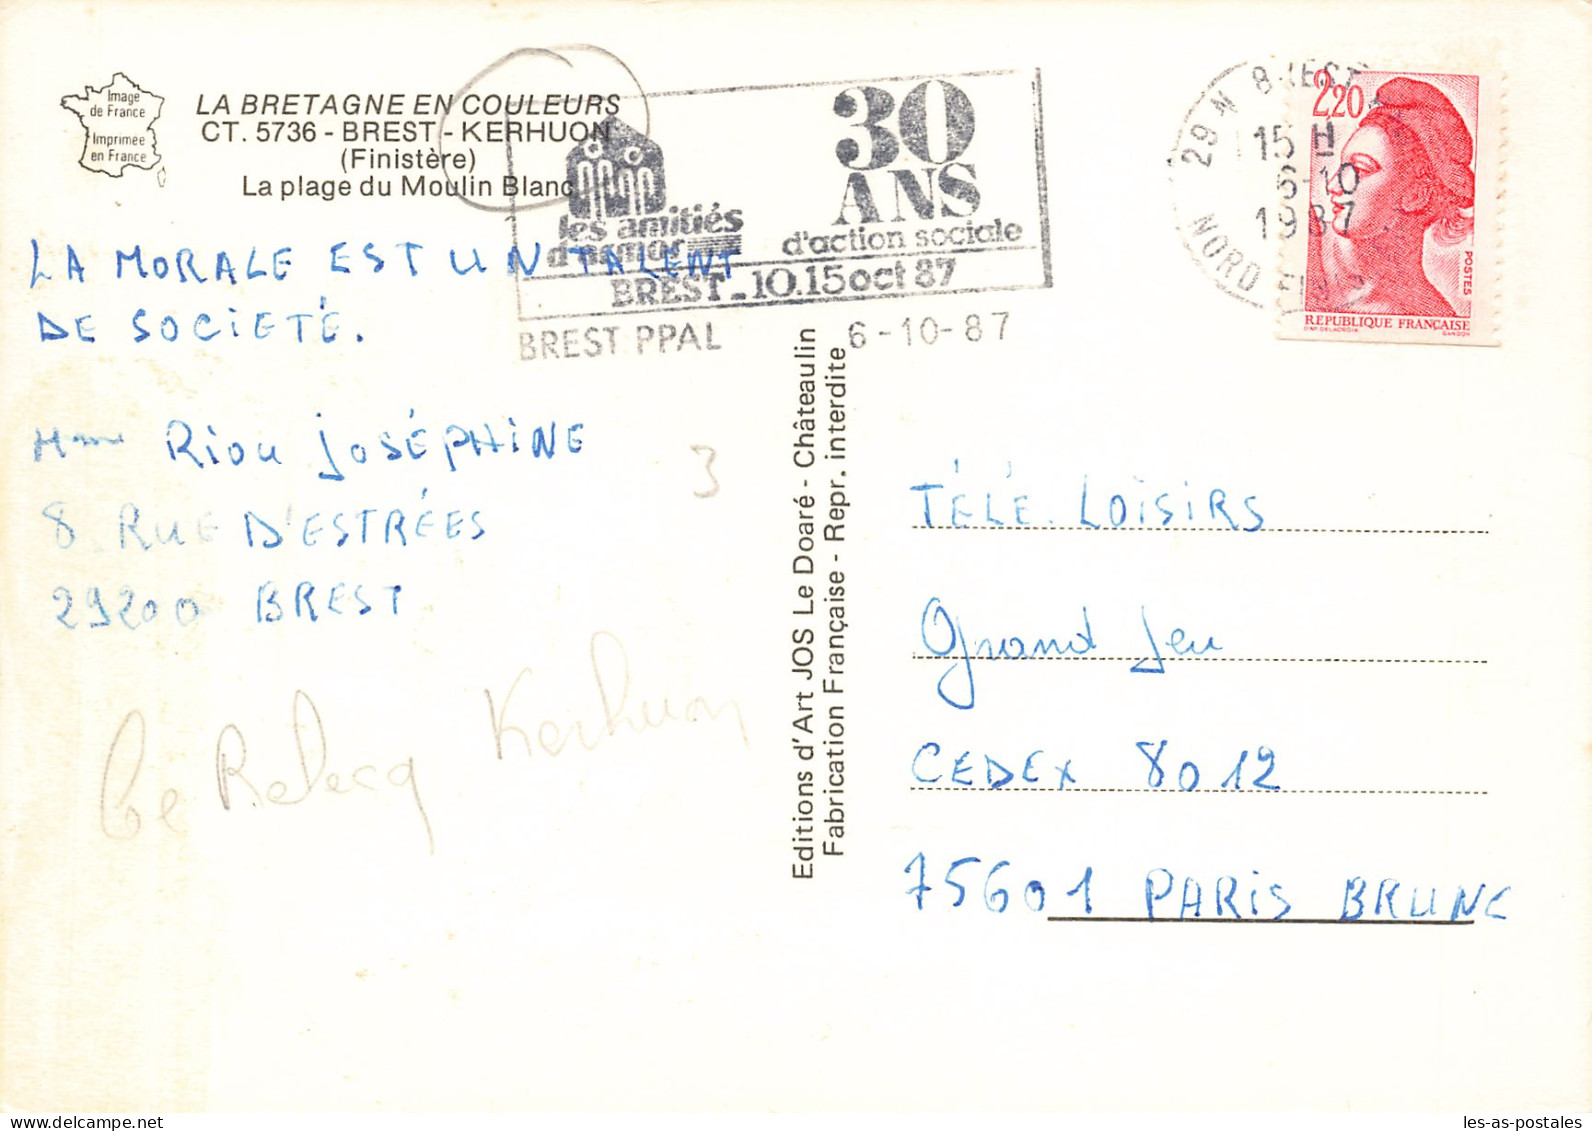 Image
de France
Imprimée
en France
LA BRETAGNE EN COULEURS
CT. 5736 - BREST - KERHUON
(Finistère)
La plage du Moulin Blanc
les amitiés
d'armor
30
ANS
d'action sociale
BREST_10.15oct 87
BREST PPAL 6-10-87
29 N BREST
15 H
6-10
1987
NORD FIN
2,20
POSTES
REPUBLIQUE FRANÇAISE
D'AP. DELACROIX GANDON
LA MORALE EST UN TALENT
DE SOCIETÉ.
Mme Riou JOSÉPHINE
8. RUE D'ESTRÉES
29200 BREST
3
Kerhuon
Editions d'Art JOS Le Doaré - Châteaulin
Fabrication Française - Repr. interdite
TÉLÉ. LOISIRS
Grand Jeu
CEDEX 8012
75601 PARIS BRUNE
les-as-postales